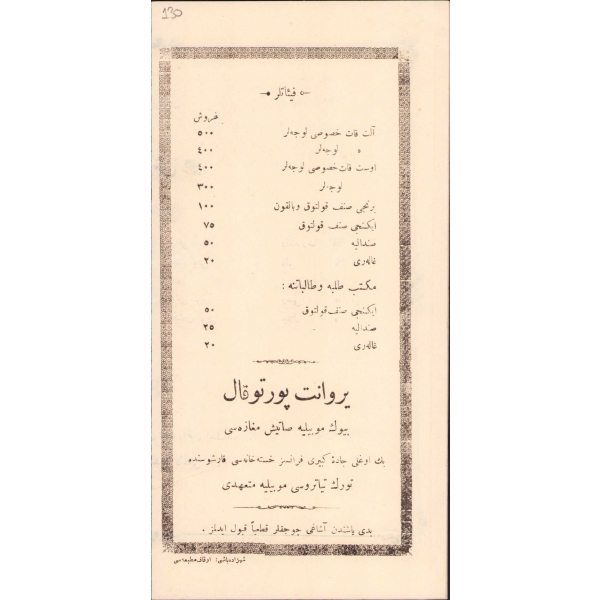 130
فیئاتلر
غروش
آلت قات خصوصی لوجه‌لر ٥٠٠
» لوجه‌لر ٤٠٠
اوست قات خصوصی لوجه‌لر ٤٠٠
لوجه‌لر ٣٠٠
برنجی صنف قولتوق و بالقون ١٠٠
ایکنجی صنف قولتوق ٧٥
صندالیه ٥٠
غاله‌ری ٢٠
مکتب طلبه و طالباتنه :
ایکنجی صنف قولتوق ٥٠
صندالیه ٢٥
غاله‌ری ٢٠
یروانت پورتوقال
بیوك موبیلیه صاتیش مغازه‌سی
بك اوغلی جادۀ کبیری فرانسز خسته‌خانه‌سی قارشوسنده
تورك تیاتروسی موبیلیه متعهدی
یدی یاشندن آشاغی چوجقلر قطعیاً قبول ایدلمز .
شهزاده‌باشی : اوقاف مطبعه‌سی